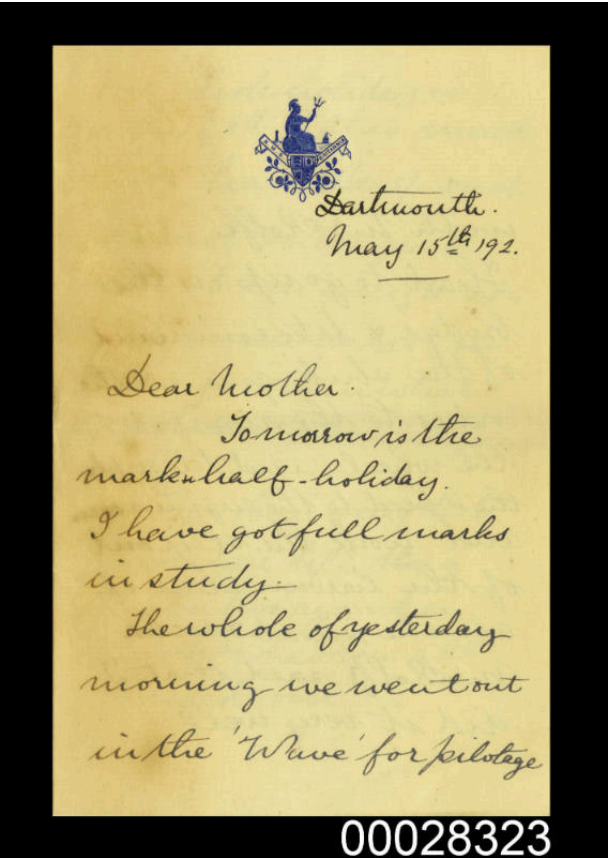 Dartmouth.
May 15th 192.
Dear Mother.
Tomorrow is the
mark half-holiday.
I have got full marks
in study.
The whole of yesterday
morning we went out
in the 'Wave' for pilotage
00028323